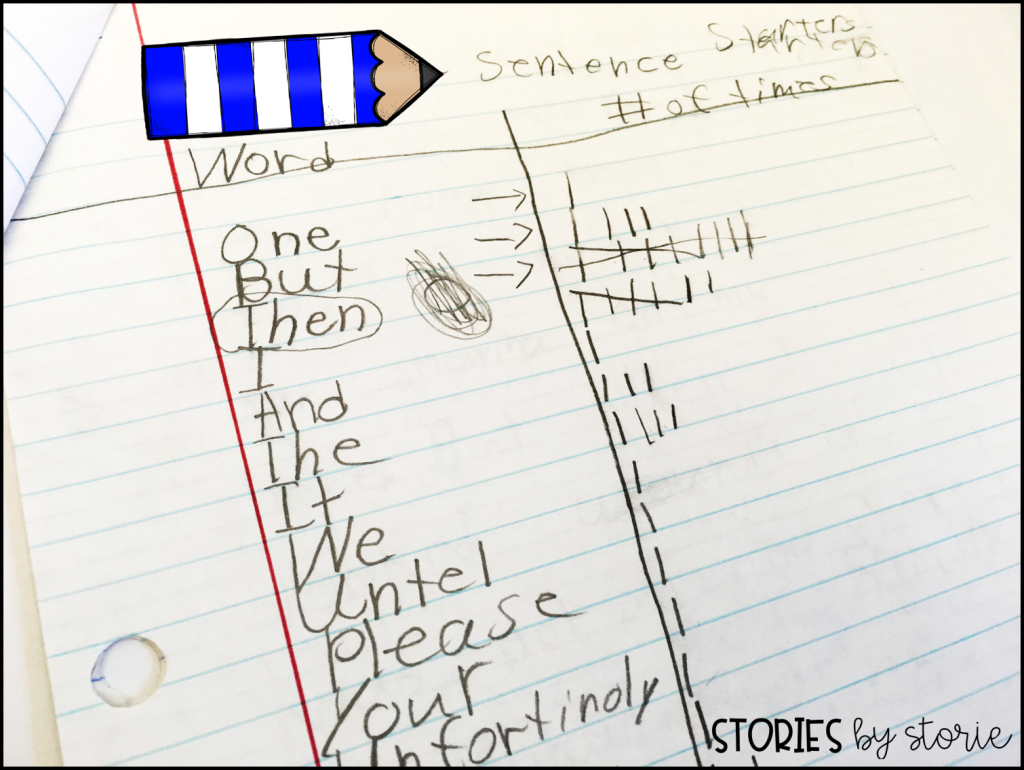 Sentence Starters
Word # of times
One
But
Then
I
And
The
It
We
Untel
Please
Your
Unfortindly
STORIES by storie